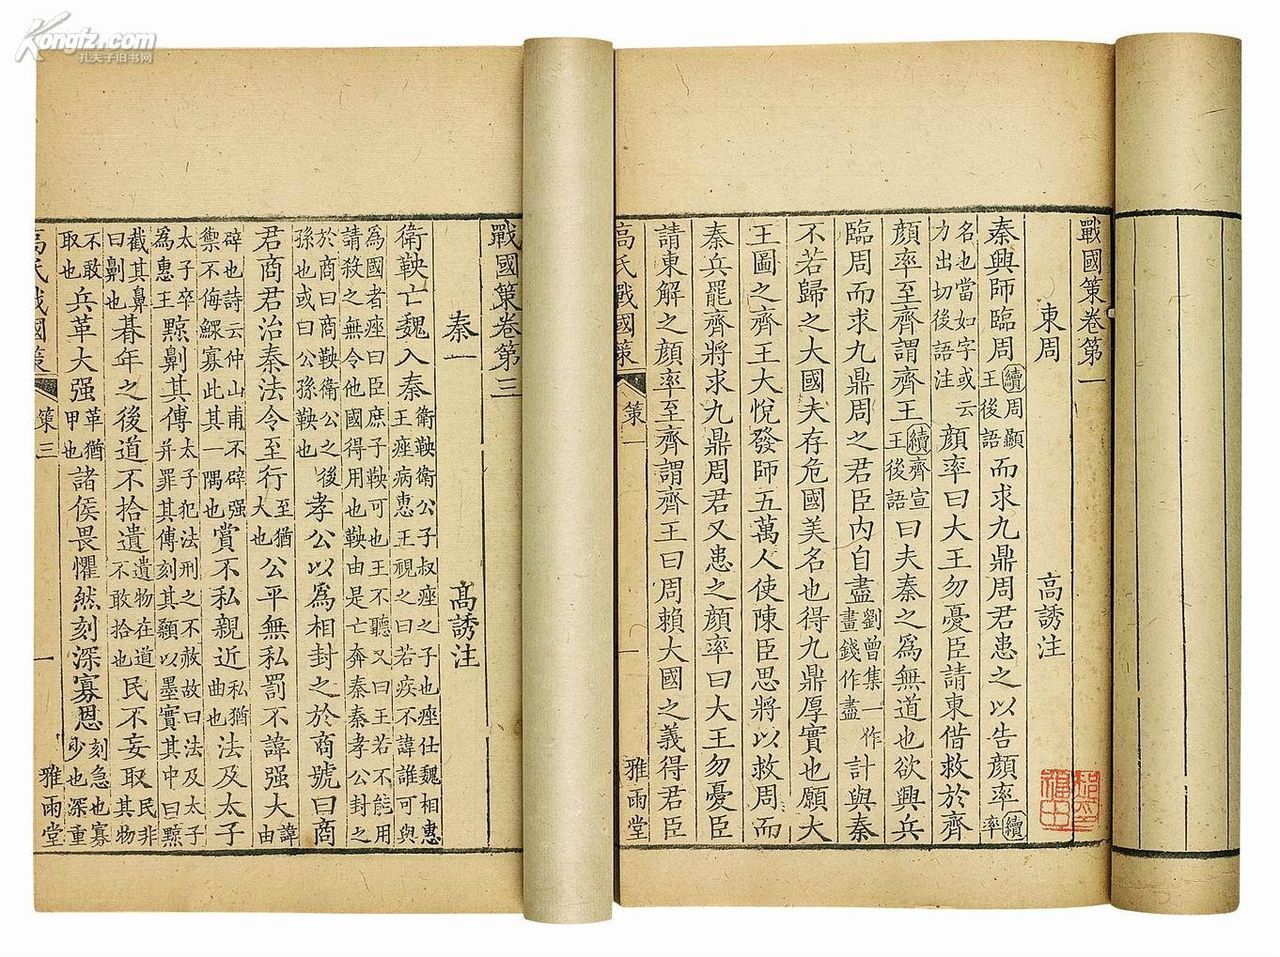 戰國策卷第一
東周 高誘注
秦興師臨周續周顯王後語而求九鼎周君患之以告顏率續率
名也當如字或云力出切後語注顏率曰大王勿憂臣請東借救於齊
顏率至齊謂齊王續齊宣王後語曰夫秦之爲無道也欲興兵
臨周而求九鼎周之君臣內自盡劉曾集一作畫錢作盡計與秦
不若歸之大國夫存危國美名也得九鼎厚實也願大
王圖之齊王大悅發師五萬人使陳臣思將以救周而
秦兵罷齊將求九鼎周君又患之顏率曰大王勿憂臣
請東解之顏率至齊謂齊王曰周賴大國之義得君臣
高氏戰國策 策一 雅雨堂
戰國策卷第三
秦一 高誘注
衛鞅亡魏入秦衛鞅衛公子叔痤之子也痤仕魏相惠王痤病惠王視之曰若疾不諱誰可與
爲國者痤曰臣庶子鞅可也王不聽又曰王若不能用請殺之無令他國得用也鞅由是亡奔秦秦孝公封之
於商曰商鞅衛公之後孫也或曰公孫鞅也孝公以爲相封之於商號曰商
君商君治秦法令至行至猶大也公平無私罰不諱强大諱由
辟也詩云仲山甫不辟强禦不侮鰥寡此其一隅也賞不私親近私猶曲也法及太子
太子卒爲惠王黥劓其傅太子犯法刑之不赦故曰法及太子并罪其傅刻其顙以墨實其中曰黥
截其鼻曰劓也朞年之後道不拾遺遺物在道不敢拾也民不妄取民非其物
不敢取也兵革大强革猶甲也諸侯畏懼然刻深寡恩刻急也寡少也深重
高氏戰國策 策三 一 雅雨堂
Kongfz.com
孔夫子旧书网